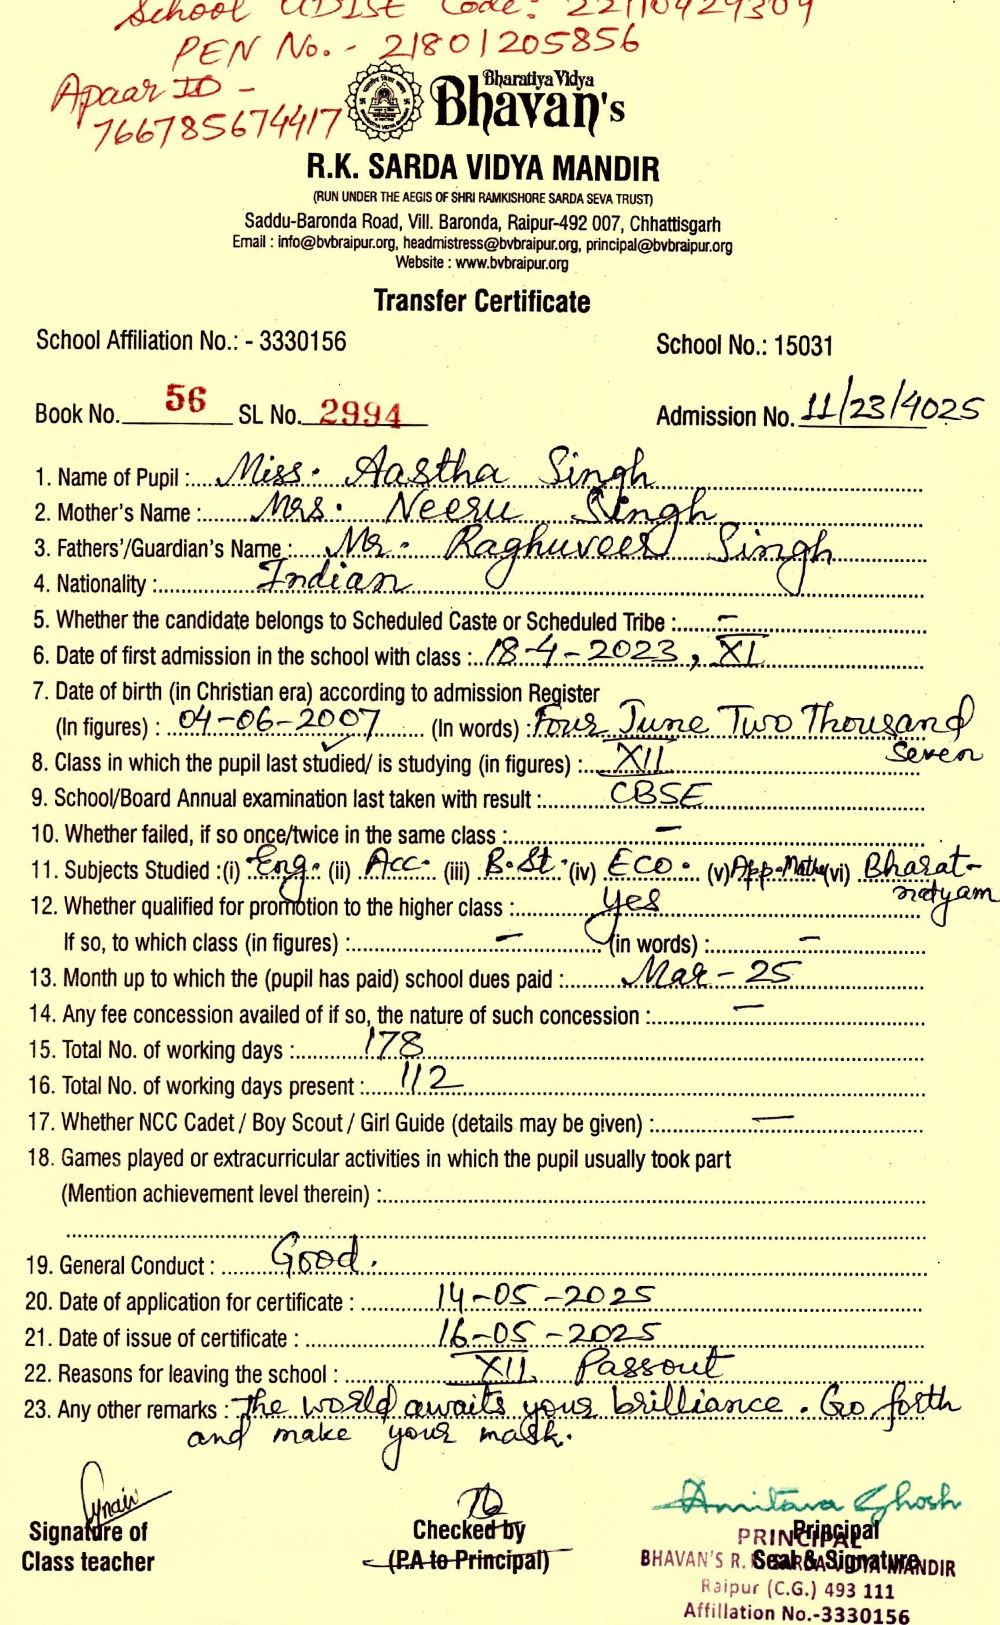 School UDISE Code: 22110429309
PEN No. - 21801205856
Apaar ID -
766785674417
Bharatiya Vidya
Bhavan's
R.K. SARDA VIDYA MANDIR
(RUN UNDER THE AEGIS OF SHRI RAMKISHORE SARDA SEVA TRUST)
Saddu-Baronda Road, Vill. Baronda, Raipur-492 007, Chhattisgarh
Email : info@bvbraipur.org, headmistress@bvbraipur.org, principal@bvbraipur.org
Website : www.bvbraipur.org
Transfer Certificate
School Affiliation No.: - 3330156 School No.: 15031
Book No. 56 SL No. 2994 Admission No. 11/23/4025
1. Name of Pupil : Miss. Aastha Singh
2. Mother's Name : Mrs. Neeru Singh
3. Fathers'/Guardian's Name : Mr. Raghuveer Singh
4. Nationality : Indian
5. Whether the candidate belongs to Scheduled Caste or Scheduled Tribe : -
6. Date of first admission in the school with class : 18-4-2023, XI
7. Date of birth (in Christian era) according to admission Register
(In figures) : 04-06-2007 (In words) : Four June Two Thousand
Seven
8. Class in which the pupil last studied/ is studying (in figures) : XII
9. School/Board Annual examination last taken with result : CBSE
10. Whether failed, if so once/twice in the same class : -
11. Subjects Studied :(i) Eng. (ii) Acc. (iii) B.St. (iv) Eco. (v) App-Maths (vi) Bharat-
natyam
12. Whether qualified for promotion to the higher class : Yes
If so, to which class (in figures) : - (in words) : -
13. Month up to which the (pupil has paid) school dues paid : Mar-25
14. Any fee concession availed of if so, the nature of such concession : -
15. Total No. of working days : 178
16. Total No. of working days present : 112
17. Whether NCC Cadet / Boy Scout / Girl Guide (details may be given) : -
18. Games played or extracurricular activities in which the pupil usually took part
(Mention achievement level therein) :
19. General Conduct : Good.
20. Date of application for certificate : 14-05-2025
21. Date of issue of certificate : 16-05-2025
22. Reasons for leaving the school : XII Passout
23. Any other remarks : The world awaits your brilliance. Go forth
and make your mark.
Amitava Ghosh
Signature of Checked by Principal
Class teacher (P.A to Principal) Seal & Signature
PRINCIPAL
BHAVAN'S R.K. SARDA VIDYA MANDIR
Raipur (C.G.) 493 111
Affillation No.-3330156